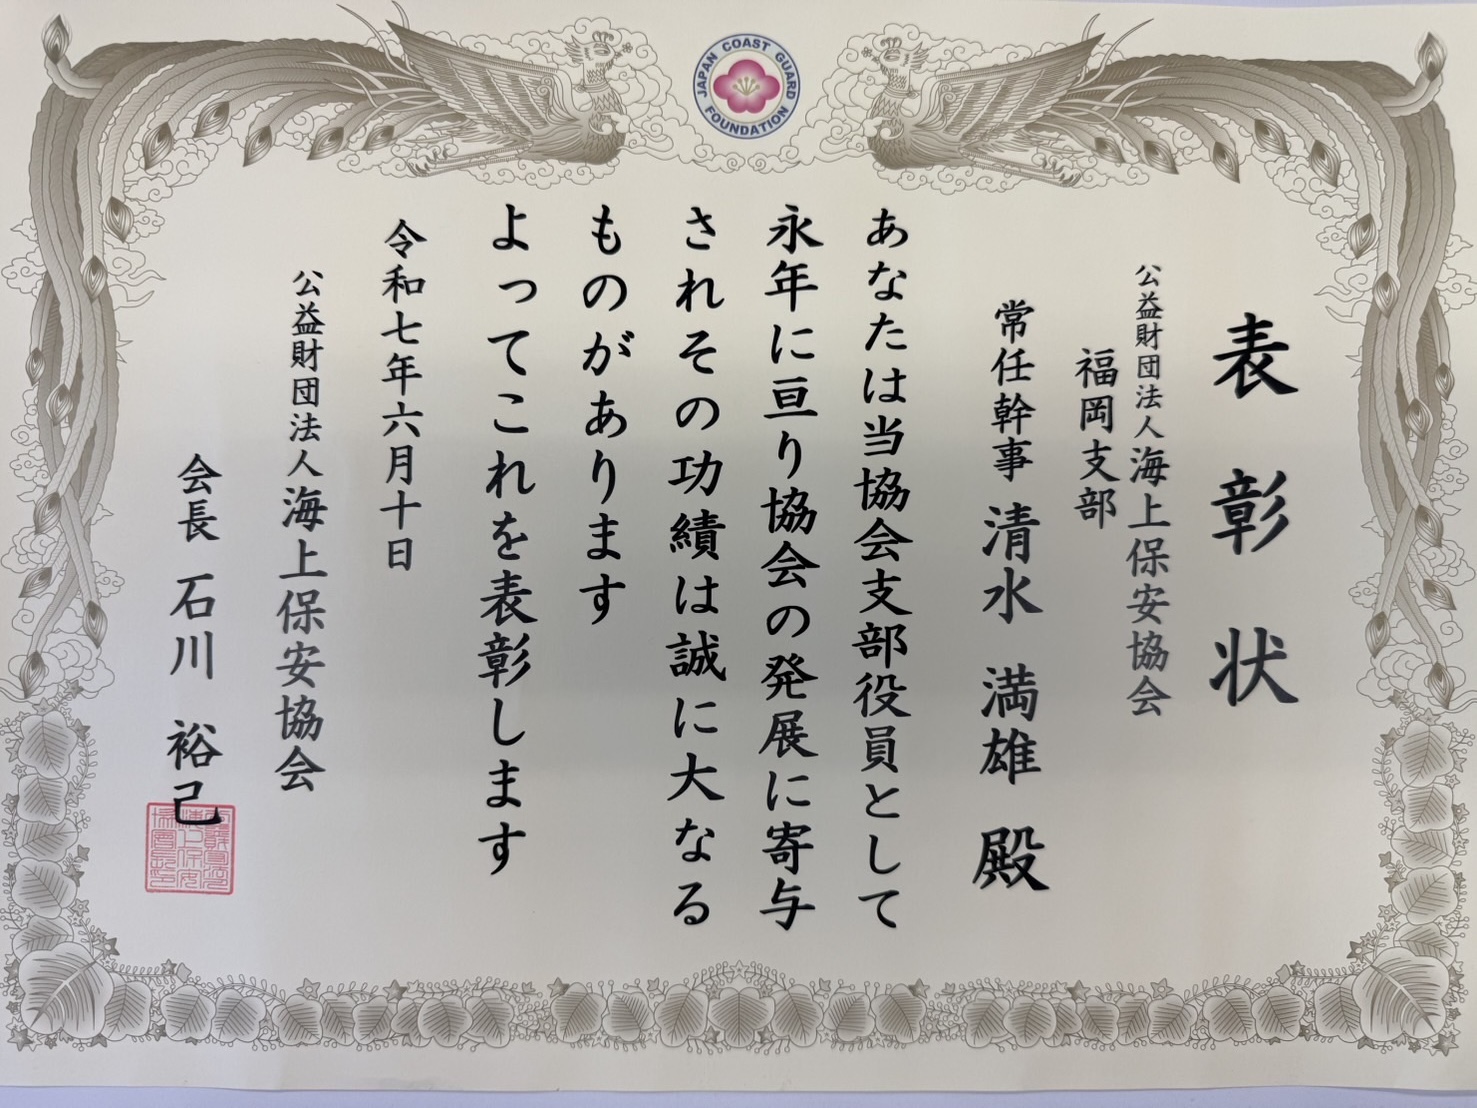 JAPAN COAST GUARD FOUNDATION
表彰状
公益財団法人海上保安協会
福岡支部
常任幹事 清水 満雄 殿
あなたは当協会支部役員として
永年に亘り協会の発展に寄与
されその功績は誠に大なる
ものがあります
よってこれを表彰します
令和七年六月十日
公益財団法人海上保安協会
会長 石川 裕己